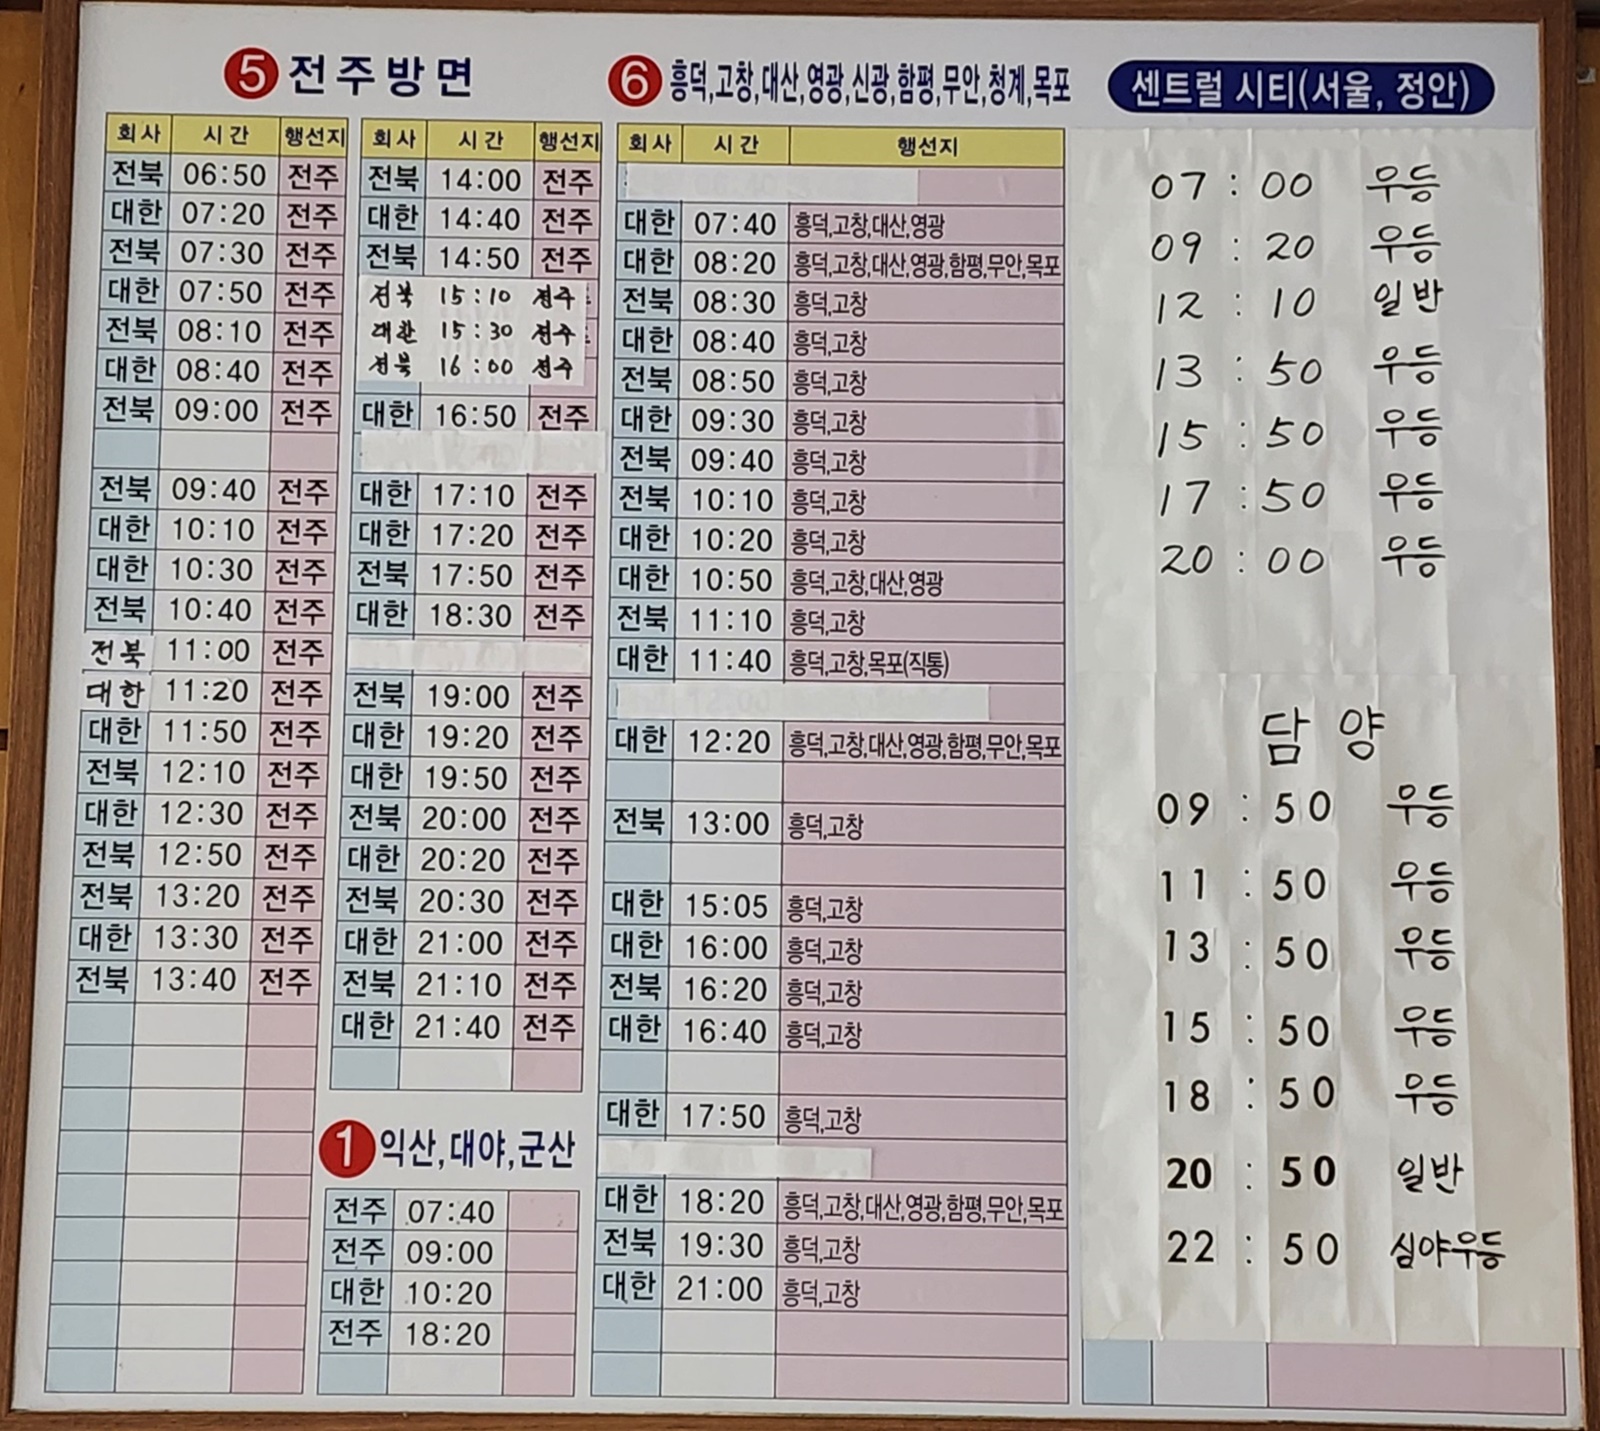 5 전주방면
회사 시간 행선지
전북 06:50 전주
대한 07:20 전주
전북 07:30 전주
대한 07:50 전주
전북 08:10 전주
대한 08:40 전주
전북 09:00 전주
전북 09:40 전주
대한 10:10 전주
대한 10:30 전주
전북 10:40 전주
전북 11:00 전주
대한 11:20 전주
대한 11:50 전주
전북 12:10 전주
대한 12:30 전주
전북 12:50 전주
전북 13:20 전주
대한 13:30 전주
전북 13:40 전주
회사 시간 행선지
전북 14:00 전주
대한 14:40 전주
전북 14:50 전주
전북 15:10 전주
대한 15:30 전주
전북 16:00 전주
대한 16:50 전주
대한 17:10 전주
대한 17:20 전주
전북 17:50 전주
대한 18:30 전주
전북 19:00 전주
대한 19:20 전주
대한 19:50 전주
전북 20:00 전주
대한 20:20 전주
전북 20:30 전주
대한 21:00 전주
전북 21:10 전주
대한 21:40 전주
1 익산,대야,군산
전주 07:40
전주 09:00
대한 10:20
전주 18:20
6 흥덕,고창,대산,영광,신광,함평,무안,청계,목포
회사 시간 행선지
대한 07:40 흥덕,고창,대산,영광
대한 08:20 흥덕,고창,대산,영광,함평,무안,목포
전북 08:30 흥덕,고창
대한 08:40 흥덕,고창
전북 08:50 흥덕,고창
대한 09:30 흥덕,고창
전북 09:40 흥덕,고창
전북 10:10 흥덕,고창
대한 10:20 흥덕,고창
대한 10:50 흥덕,고창,대산,영광
전북 11:10 흥덕,고창
대한 11:40 흥덕,고창,목포(직통)
대한 12:20 흥덕,고창,대산,영광,함평,무안,목포
전북 13:00 흥덕,고창
대한 15:05 흥덕,고창
대한 16:00 흥덕,고창
전북 16:20 흥덕,고창
대한 16:40 흥덕,고창
대한 17:50 흥덕,고창
대한 18:20 흥덕,고창,대산,영광,함평,무안,목포
전북 19:30 흥덕,고창
대한 21:00 흥덕,고창
센트럴 시티(서울, 정안)
07 : 00 우등
09 : 20 우등
12 : 10 일반
13 : 50 우등
15 : 50 우등
17 : 50 우등
20 : 00 우등
담양
09 : 50 우등
11 : 50 우등
13 : 50 우등
15 : 50 우등
18 : 50 우등
20 : 50 일반
22 : 50 심야우등